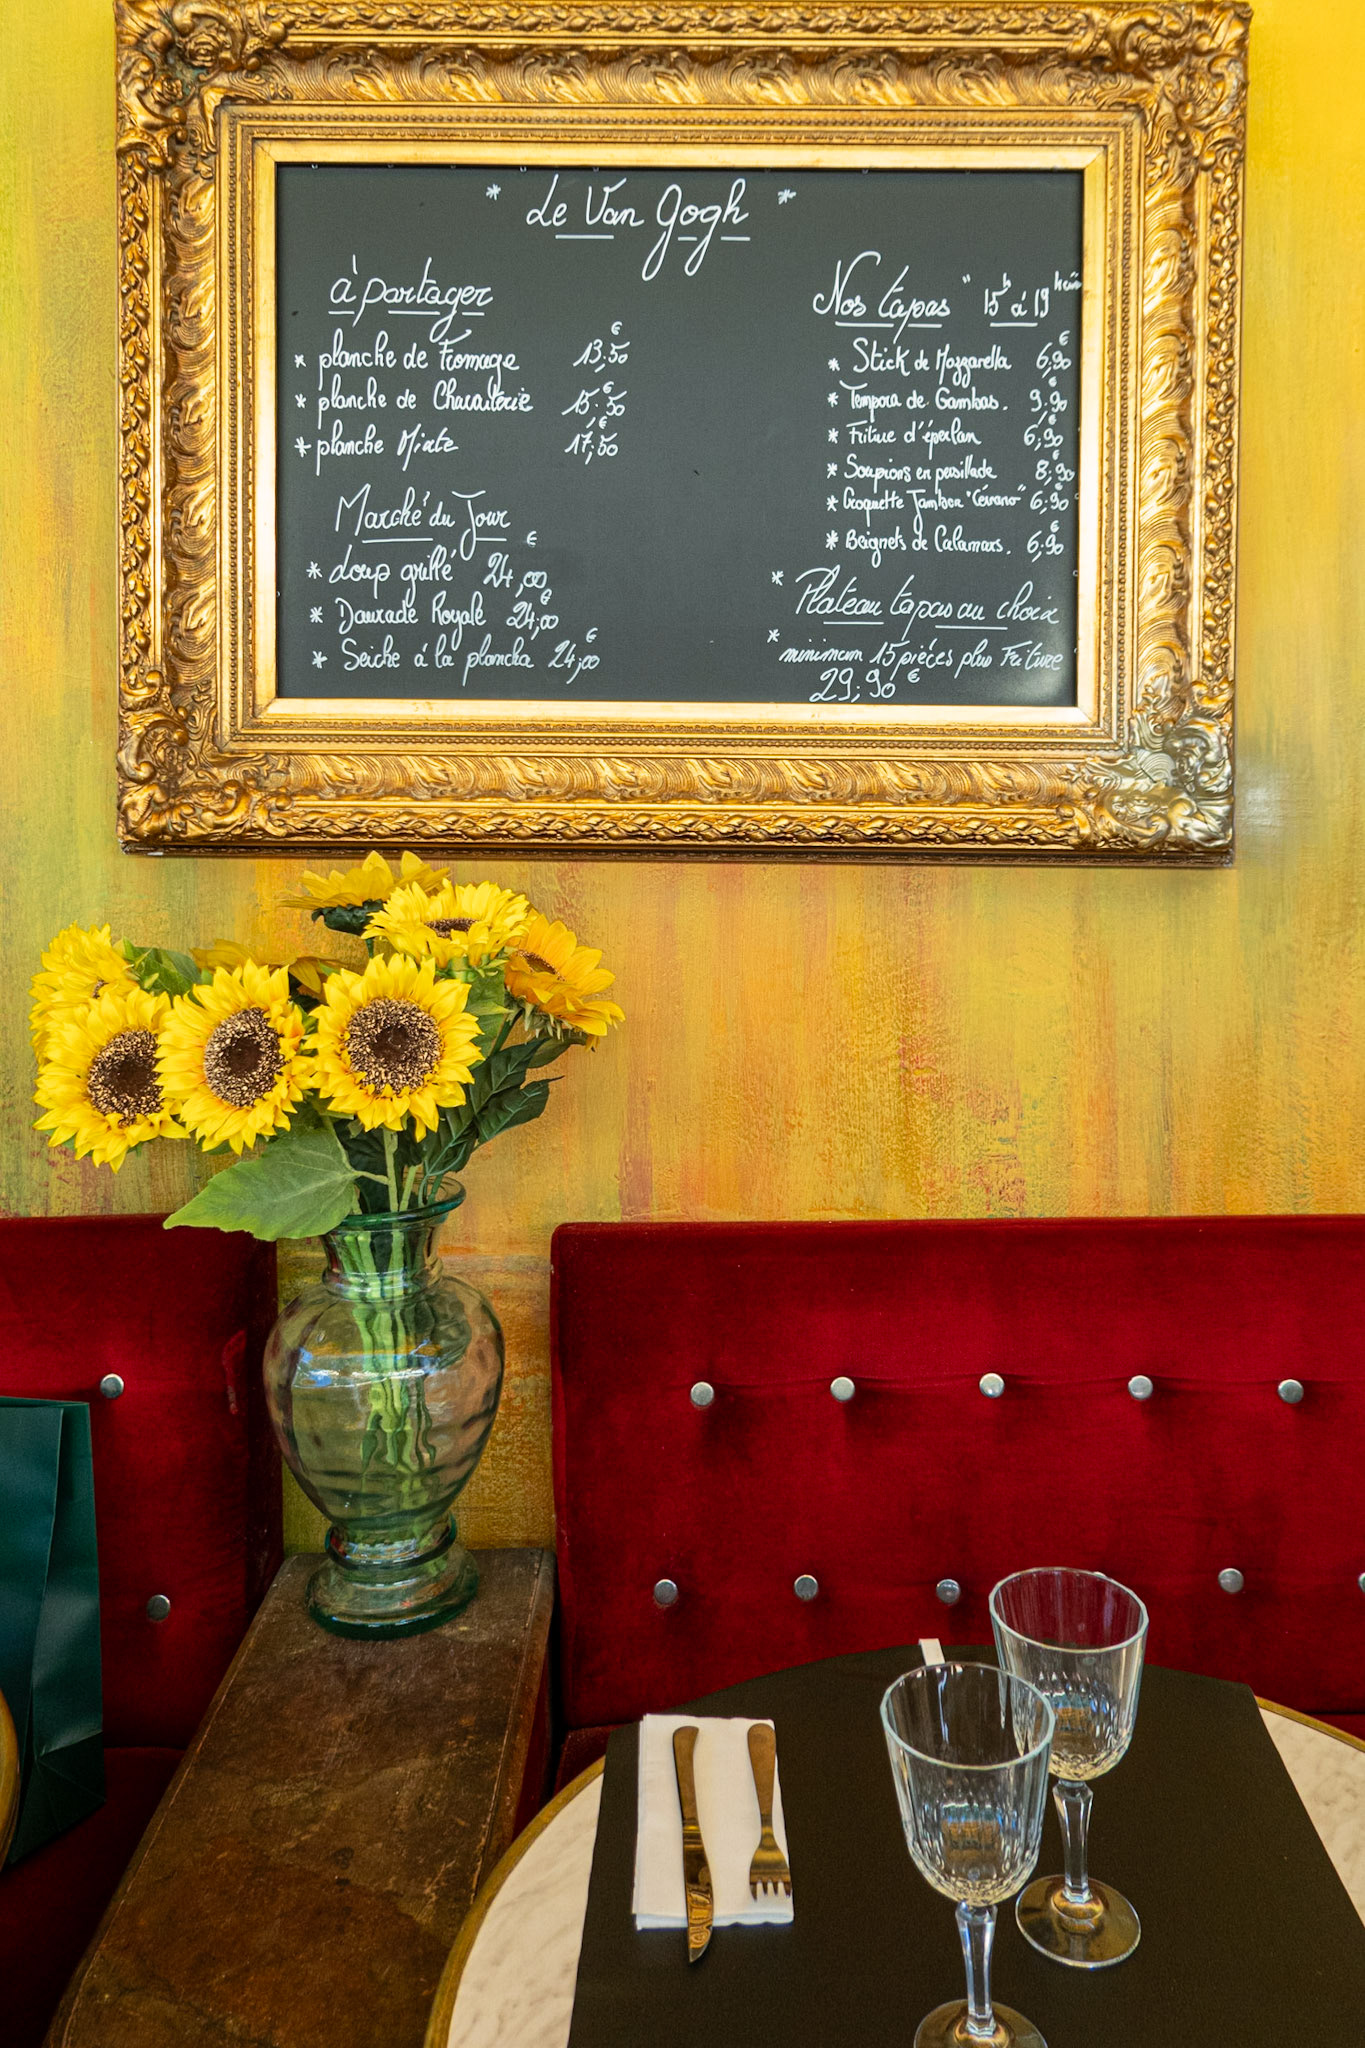 * Le Van Gogh *
à partager
* planche de Fromage 13,50 €
* planche de Charcuterie 15,50 €
* planche Mixte 17,50 €
Marché du Jour
* Loup grillé 24,00 €
* Daurade Royale 24,00 €
* Seiche à la plancha 24,00 €
Nos tapas " 15h à 19
* Stick de Mozzarella 6,90 €
* Tempora de Gambas. 9,90 €
* Friture d'éperlan 6,90 €
* Soupions en persillade 8,90 €
* Croquette Jambon "Cérano" 6,90 €
* Beignets de Calamars. 6,90 €
* Plateau tapas au choix
* minimum 15 piéces plus Friture
29,90 €